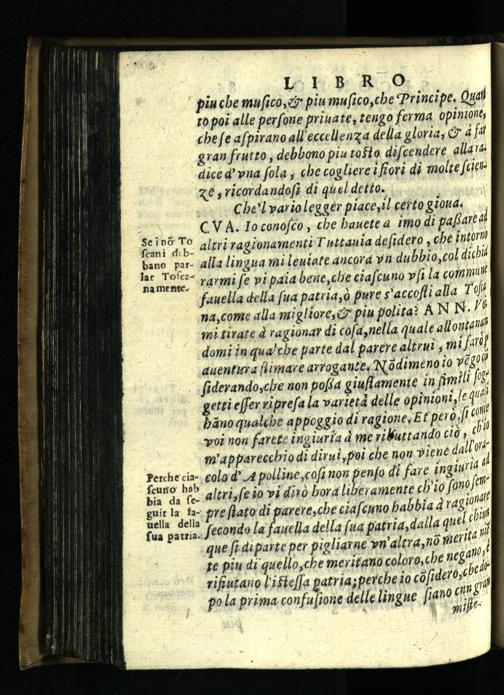 LIBRO
piu che musico,& piu musico,che Principe. Quan
to poi alle persone priuate, tengo ferma opinione,
che se aspirano all'eccellenza della gloria, & à far
gran frutto, debbono piu tosto discendere alla ra-
dice d'vna sola, che cogliere i fiori di molte scien-
ze, ricordandosi di quel detto.
Che'l vario legger piace,il certo gioua.
CVA. Io conosco, che hauete a imo di passare ad
Se i nō To
scani deb-
bano par-
lar Tosca-
namente.
altri ragionamenti Tuttauia desidero, che intorno
alla lingua mi leuiate ancora vn dubbio, col dichia
rarmi se vi paia bene,che ciascuno vsi la commune
fauella della sua patria,ò pure s'accosti alla Tosca
na,come alla migliore,& piu polita? ANN. Voi
mi tirate à ragionar di cosa,nella quale allontanan
domi in qualche parte dal parere altrui, mi farò p
auentura stimare arrogante. Nōdimeno io vēgo cō
siderando,che non possa giustamente in simili sog-
getti esser ripresa la varietà delle opinioni, le quali
hāno qualche appoggio di ragione. Et però, si come
voi non farete ingiuria à me ributtando ciò, ch'io
m'apparecchio di dirui, poi che non viene dall'ora-
Perche cia-
scuno hab
bia da se-
guir la fa-
uella della
sua patria.
colo d'Apolline,così non penso di fare ingiuria ad
altri,se io vi dirò hora liberamente ch'io sono sem-
pre stato di parere,che ciascuno habbia à ragionare
secondo la fauella della sua patria,dalla quel chiun
que si diparte per pigliarne vn'altra,nō merita niē
te piu di quello,che meritano coloro,che negano,&
rifiutano l'istessa patria;perche io cōsidero,che do-
po la prima confusione delle lingue siano con gran
miste-